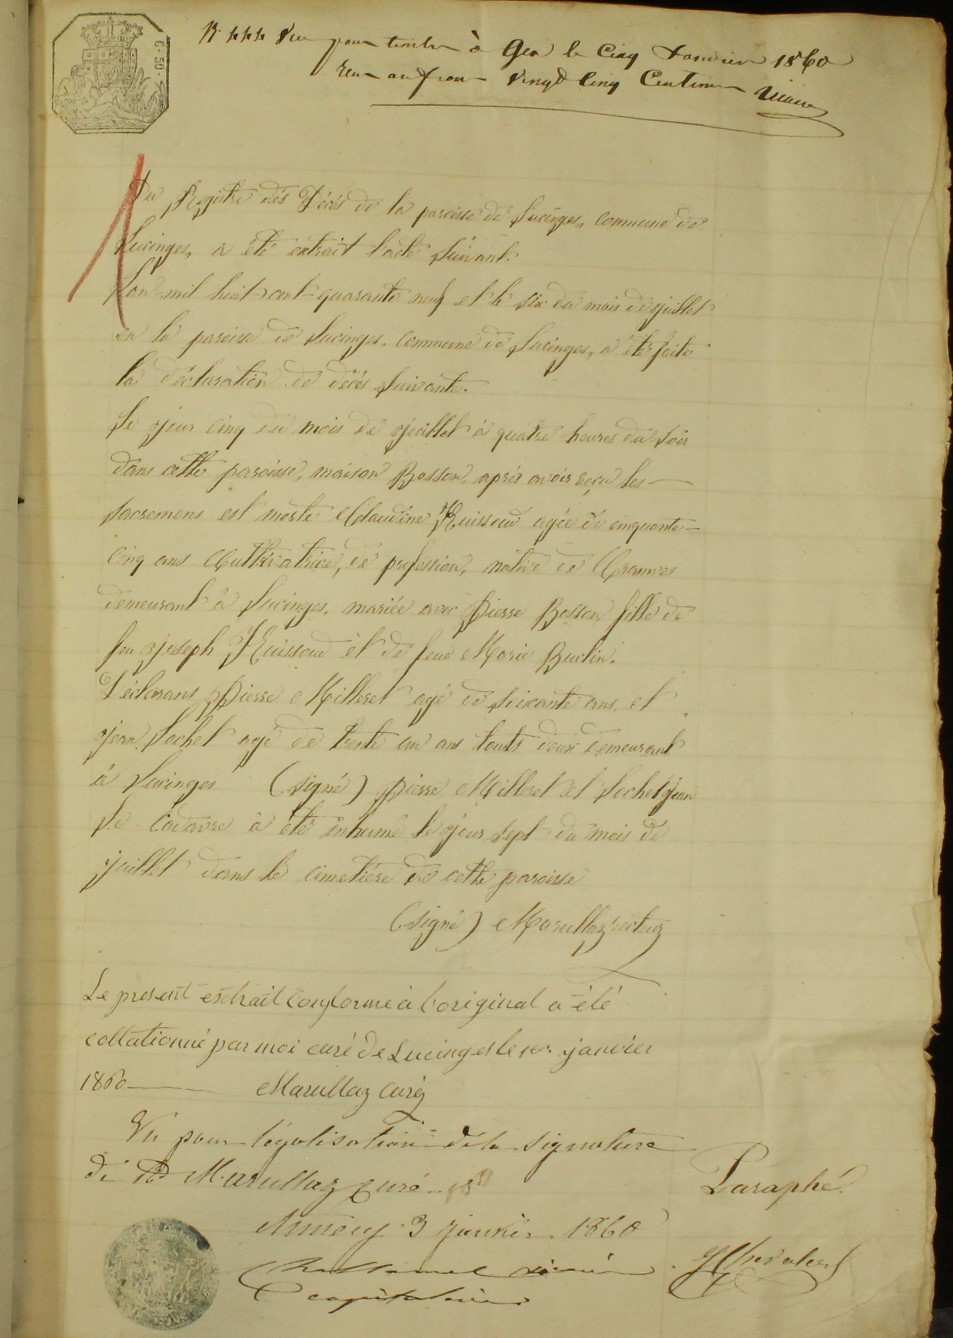 Vu pour timbre à Gex le Cinq Janvier 1860
Reçu un franc Vingt Cinq Centimes
C. 50
Du Registre dés Décés de la paroisse de Lucinges, commune de
Lucinges, a été extrait l'acte suivant.
L'an mil huit cent quarante neuf et le six du mois de juillet
en la paroisse de Lucinges, commune de Lucinges, a été faite
la déclaration de décés suivante.
Le jour cinq du mois de juillet à quatre heures du soir
dans cette paroisse, maison Bosson, aprés avoir reçu les
sacremens est morte Claudine Ruissoud agée de cinquante
cinq ans Cultivatrice, de profession, native de Cranves
demeurant à Lucinges, mariée avec Pierre Bosson, fille de
feu Joseph Ruissoud et de feue Marie Burtin.
Déclarans Pierre Milleret agé de soixante ans, et
Jean Sochet agé de trente un ans touts deux demeurant
à Lucinges (signé) Pierre Milleret et Sochet Jean
Le cadavre à été inhumé le jour sept du mois de
juillet dans le cimetiere de cette paroisse
(signé) Marullaz recteur
Le présent extrait conforme à l'original a été
collationné par moi curé de Lucinges le 1er janvier
1860 Marullaz Curé
Vu pour légalisation de la signature
de Rd Marullaz curé
Annecy 3 janvier 1860
Paraphé